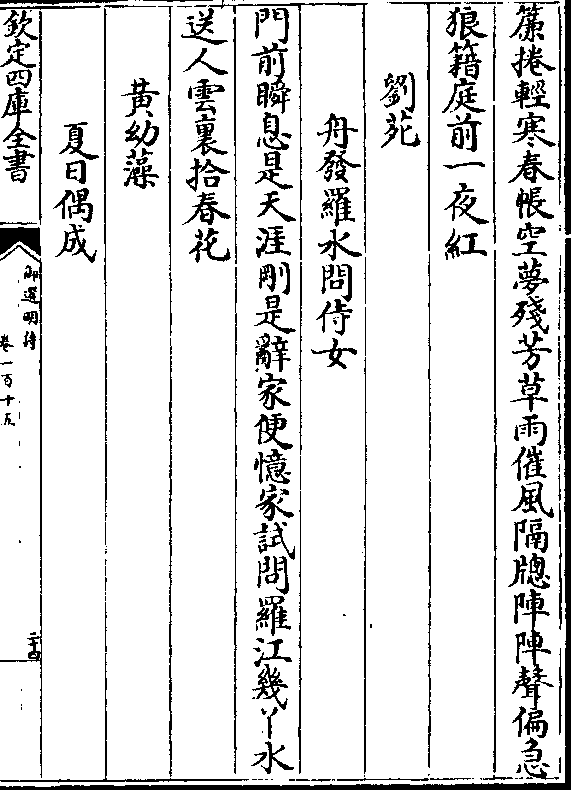 簾捲輕寒春帳空夢殘芳草雨催風隔牕陣陣聲偏急
狼籍庭前一夜紅
劉苑
舟發羅水問侍女
門前瞬息是天涯剛是辭家便憶家試問羅江幾丫水
送人雲裏拾春花
黃幼藻
夏日偶成
欽定四庫全書
御選明詩
卷一百十五
二十四